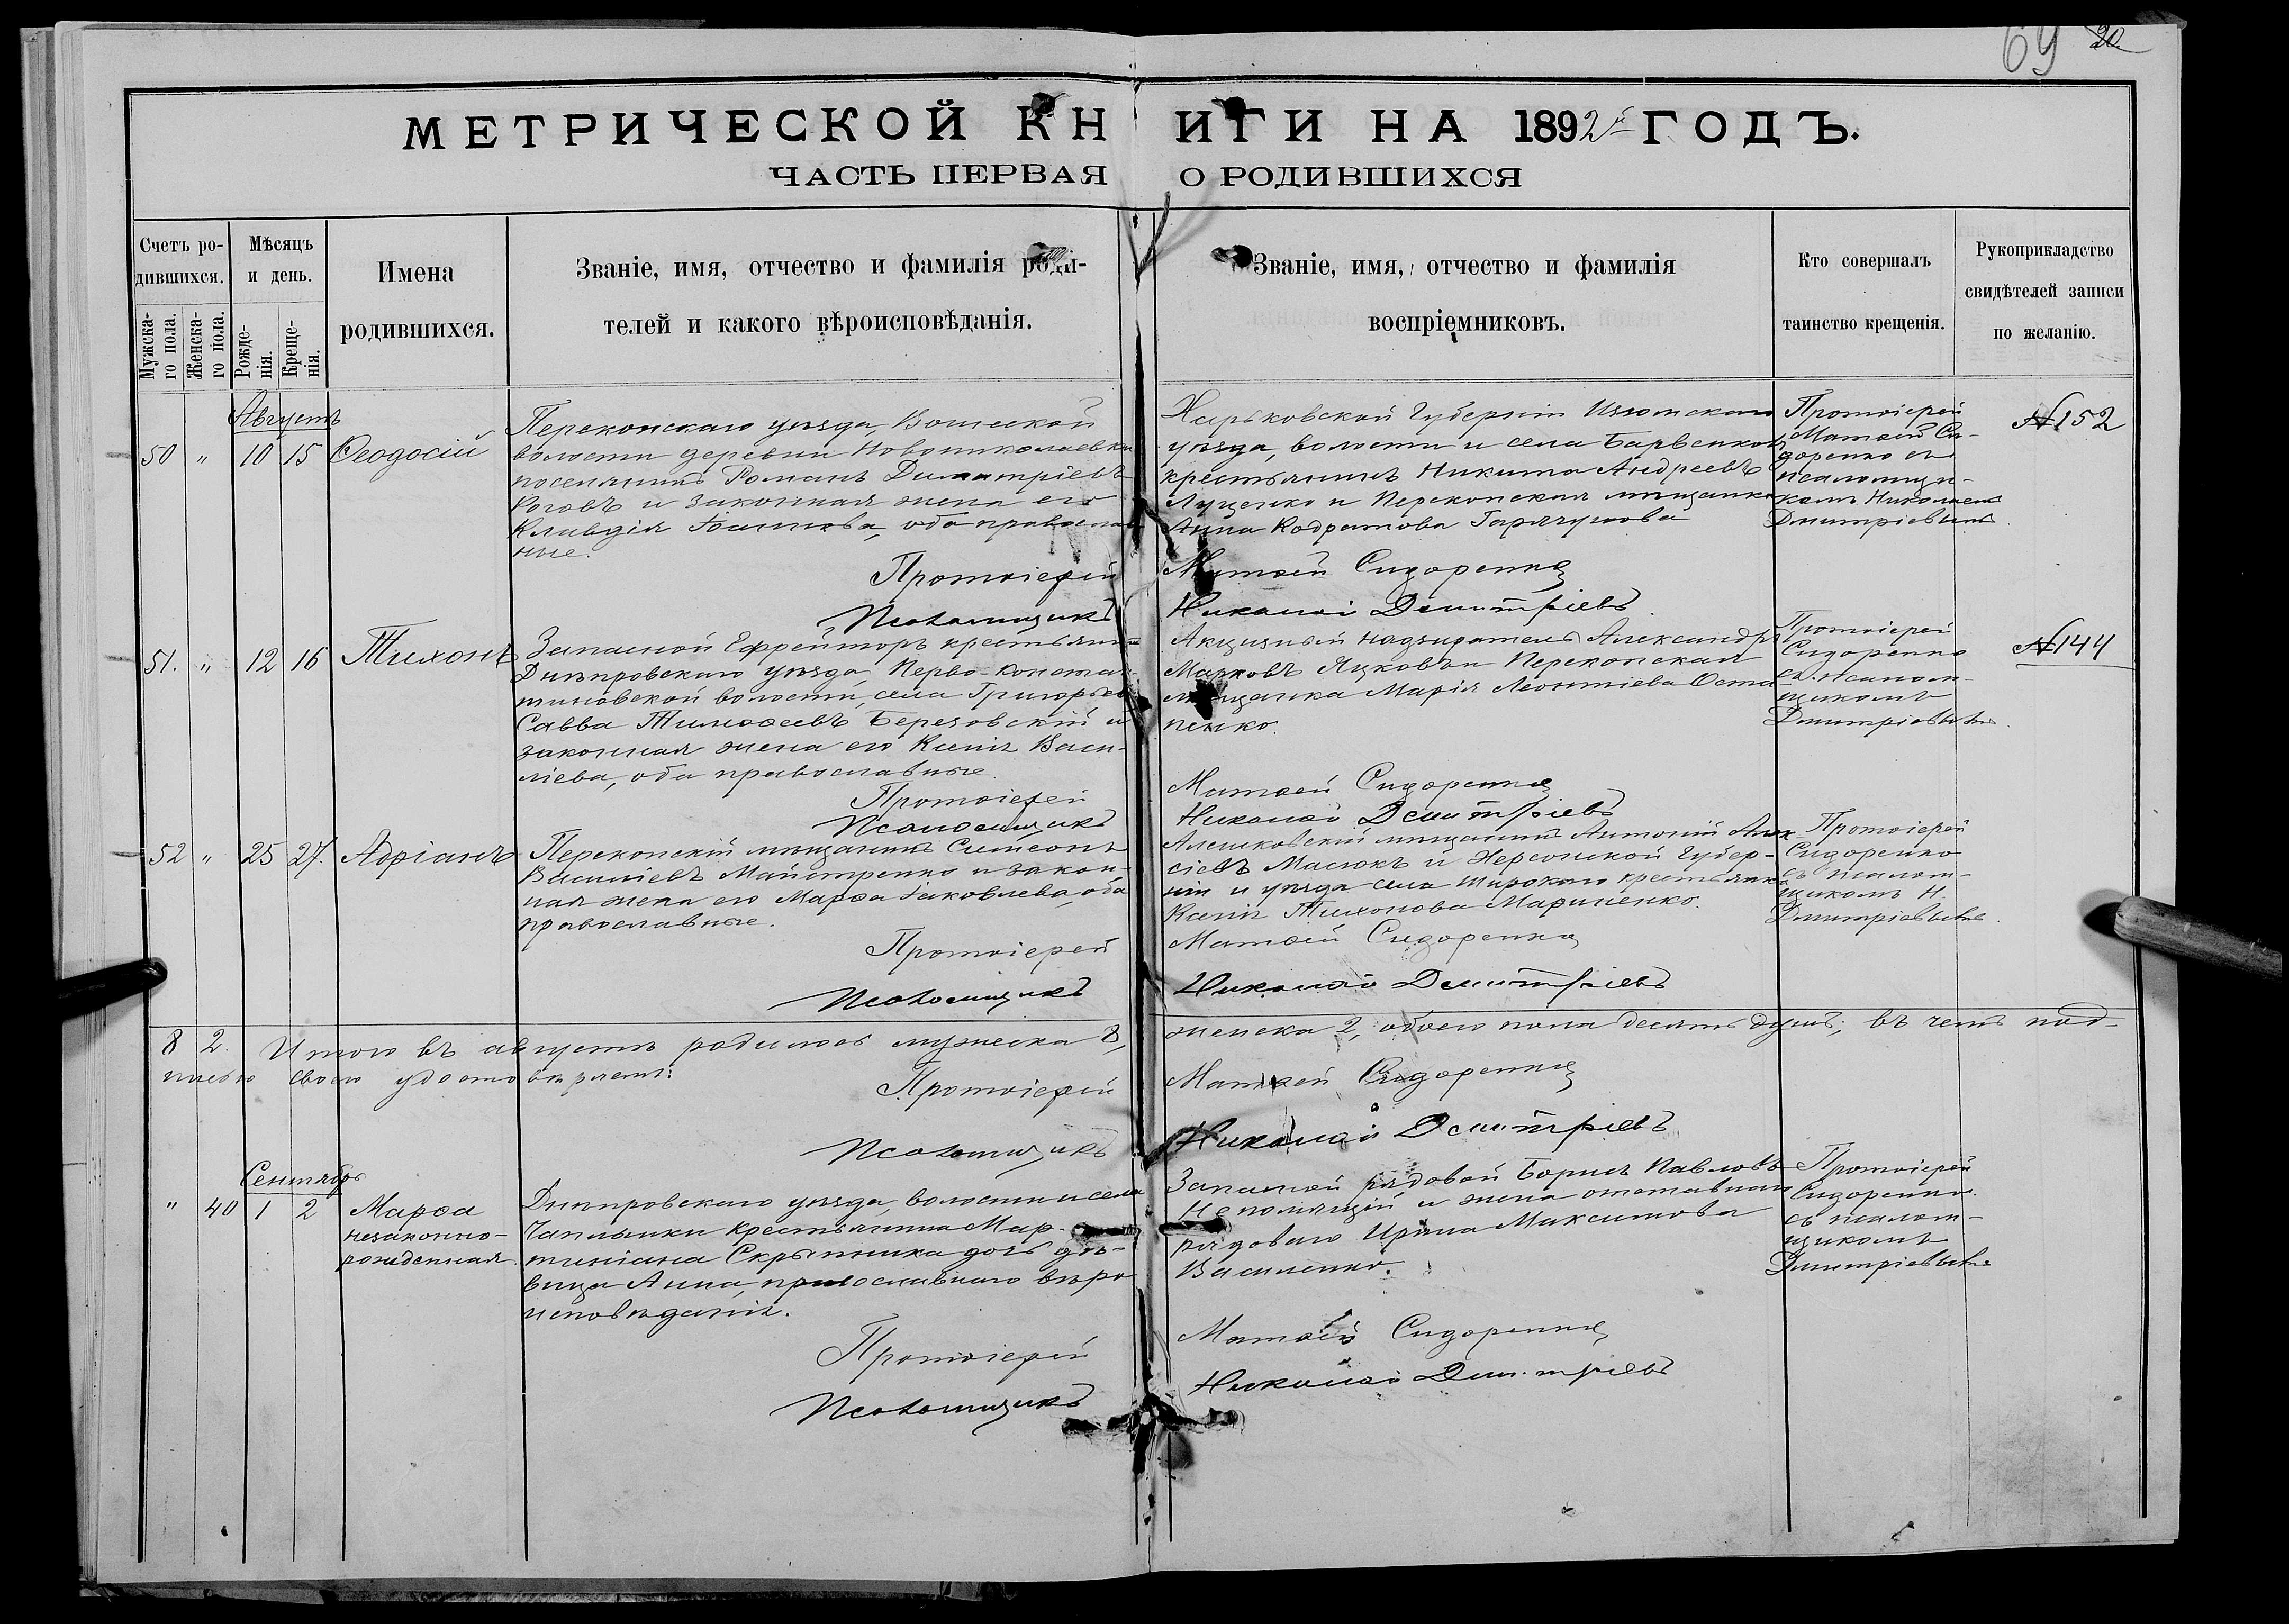 69 20
МЕТРИЧЕСКОЙ КНИГИ НА 1892й ГОДЪ.
ЧАСТЬ ПЕРВАЯ О РОДИВШИХСЯ
Счетъ ро-
дившихся.
Мужска-
го пола.
Женска-
го пола.
Мѣсяцъ
и день.
Рожде-
нія.
Креще-
нія.
Имена
родившихся.
Званіе, имя, отчество и фамилія роди-
телей и какого вѣроисповѣданія.
Званіе, имя, отчество и фамилія
воспріемниковъ.
Кто совершалъ
таинство крещенія.
Рукоприкладство
свидѣтелей записи
по желанію.
Августъ
50 " 10 15 Ѳеодосій
Перекопскаго уѣзда,
волости деревни Новониколаевки
поселянинъ Романъ Димитріевъ
Роговъ и законная жена его
Клавдія оба православ
ные.
Харьковской Губерніи Изюмскаго
уѣзда, волости и села Барвенков
крестьянинъ Никита Андреевъ
Луценко и Перекопская мѣщанка
Анна Кодратова
Протоіерей
Матѳей Си-
доренко съ
псаломщи-
комъ Николаемъ
Дмитріевымъ.
№152
Протоіерей Матѳей Сидоренко
Псаломщикъ Николай Дмитріевъ
51. " 12 16 Тихонъ
Запасной Ефрейторъ крестьянинъ
Днѣпровскаго уѣзда, Перво-Констан-
тиновской волости, села Григорьев
Савва Тимоѳеевъ Березовскій и
законная жена его Ксенія Васи-
ліева, оба православные.
Акцизный надзиратель Александръ
Марковъ Яцковъ и Перекопская
мѣщанка Марія Леонтіева Оста-
пенко.
Протоіерей
Сидоренко
съ псалом-
щикомъ
Дмитріевымъ.
№144
Протоіерей Матѳей Сидоренко
Псаломщикъ Николай Дмитріевъ
52 " 25 27. Адріанъ
Перекопскій мѣщанинъ Симеонъ
Василіевъ Майстренко и закон-
ная жена его Марѳа Іаковлева, оба
православные.
Алешковскій мѣщанинъ Антоній Алек-
сіевъ Масюкъ и Херсонской Губер-
ніи и уѣзда села Широкаго крестьянка
Ксенія Тихонова Мариненко.
Протоіерей
Сидоренко
съ псалом-
щикомъ Н.
Дмитріевымъ.
Протоіерей Матѳей Сидоренко
Псаломщикъ Николай Дмитріевъ
8 2. Итого въ августѣ родилось мужеска 8, женска 2, обоего пола десять душъ; въ чемъ под-
писью своею удостовѣряемъ:
Протоіерей Матѳей Сидоренко
Псаломщикъ Николай Дмитріевъ
Сентябрь
" 40 1 2 Марѳа
незаконно-
рожденная.
Днѣпровскаго уѣзда, волости и села
Чаплынки крестьянина Мар-
тиніана Скрыпника дочь дѣ-
вица Анна, православнаго вѣро
исповѣданія.
Запасной рядовой Борисъ Павловъ
Непомнящій и жена отставнаго
рядоваго Ирина Максимова
Василенко.
Протоіерей
Сидоренко
съ псалом-
щикомъ
Дмитріевымъ
Протоіерей Матѳей Сидоренко
Псаломщикъ Николай Дмитріевъ